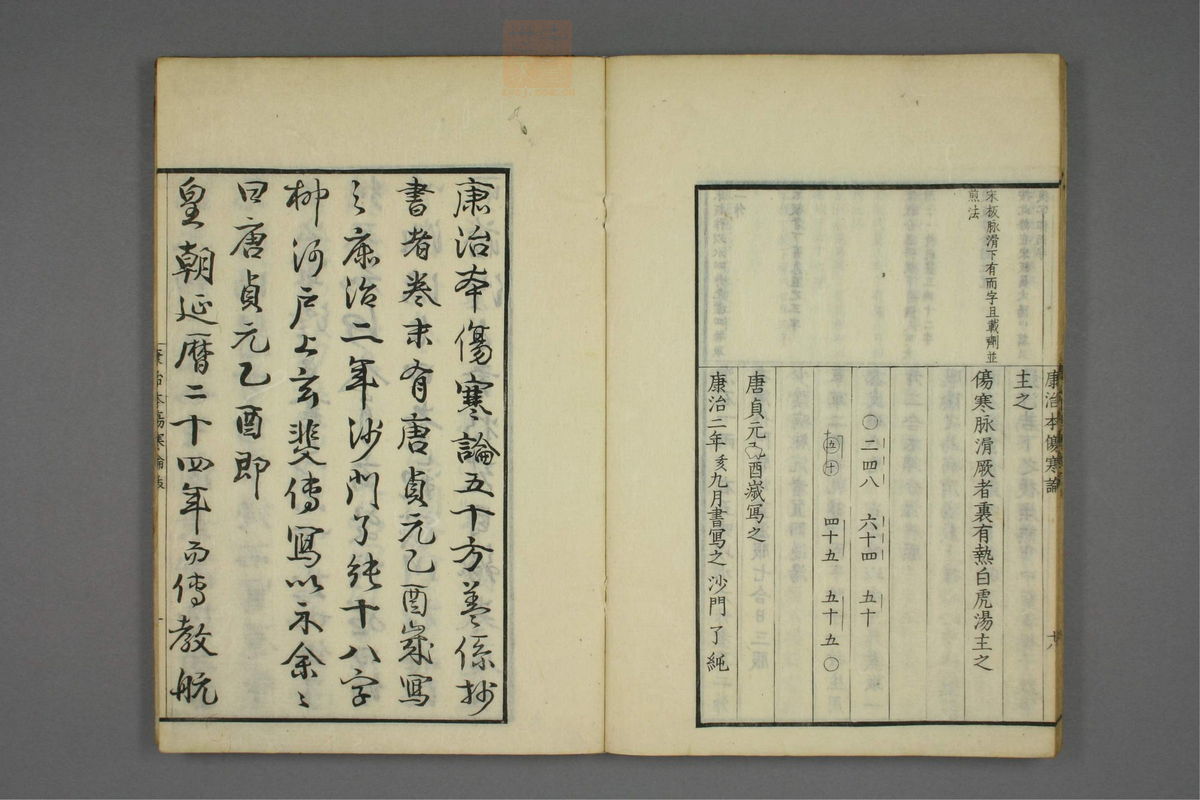 康治本傷寒論
十八
宋板脉滑下有而字且載劑並
煎法
主之
傷寒脉滑厥者裏有熱白虎湯主之
〇二四八 六十四 五十
十五十 四十五 五十五〇
唐貞元乙酉歳写之
康治二年亥九月書寫之 沙門了純
康治本傷寒論五十方蓋係抄
書者卷末有唐貞元乙酉歲寫
之康治二年沙門了純十八字
柳河戸上玄斐傳寫以示余々
曰唐貞元乙酉即
皇朝延曆二十四年而傳教航
康治本傷寒論跋
一